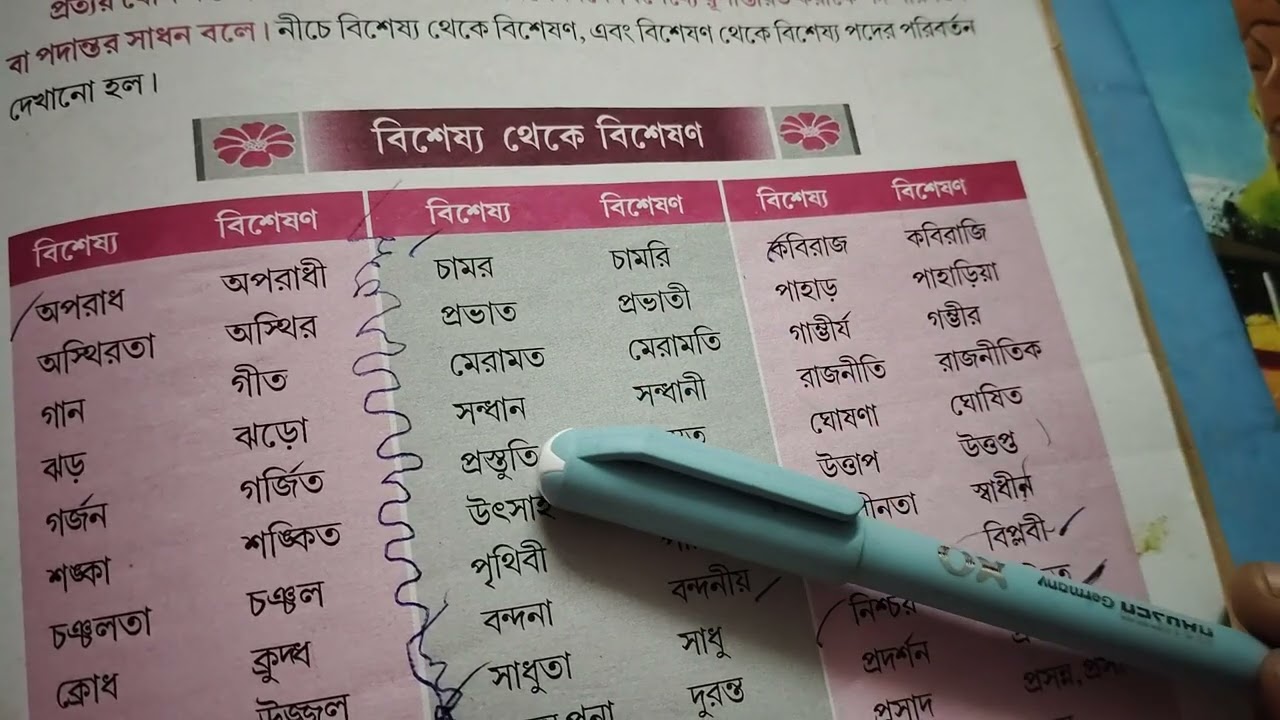 বা পদান্তর সাধন বলে। নীচে বিশেষ্য থেকে বিশেষণ, এবং বিশেষণ থেকে বিশেষ্য পদের পরিবর্তন
দেখানো হল।
বিশেষ্য থেকে বিশেষণ
বিশেষ্য বিশেষণ
অপরাধ অপরাধী
অস্থিরতা অস্থির
গান গীত
ঝড় ঝড়ো
গর্জন গর্জিত
শঙ্কা শঙ্কিত
চঞ্চলতা চঞ্চল
ক্রোধ ক্রুদ্ধ
উজ্জ্বল
বিশেষ্য বিশেষণ
চামর চামরি
প্রভাত প্রভাতী
মেরামত মেরামতি
সন্ধান সন্ধানী
প্রস্তুতি
উৎসাহ
পৃথিবী
বন্দনা বন্দনীয়
সাধুতা সাধু
দুরন্ত
বিশেষ্য বিশেষণ
কবিরাজ কবিরাজি
পাহাড় পাহাড়িয়া
গাম্ভীর্য গম্ভীর
রাজনীতি রাজনীতিক
ঘোষণা ঘোষিত
উত্তাপ উত্তপ্ত
স্বাধীন
বিপ্লবী
নিশ্চয়
প্রদর্শন
প্রসাদ প্রসন্ন,
Germany